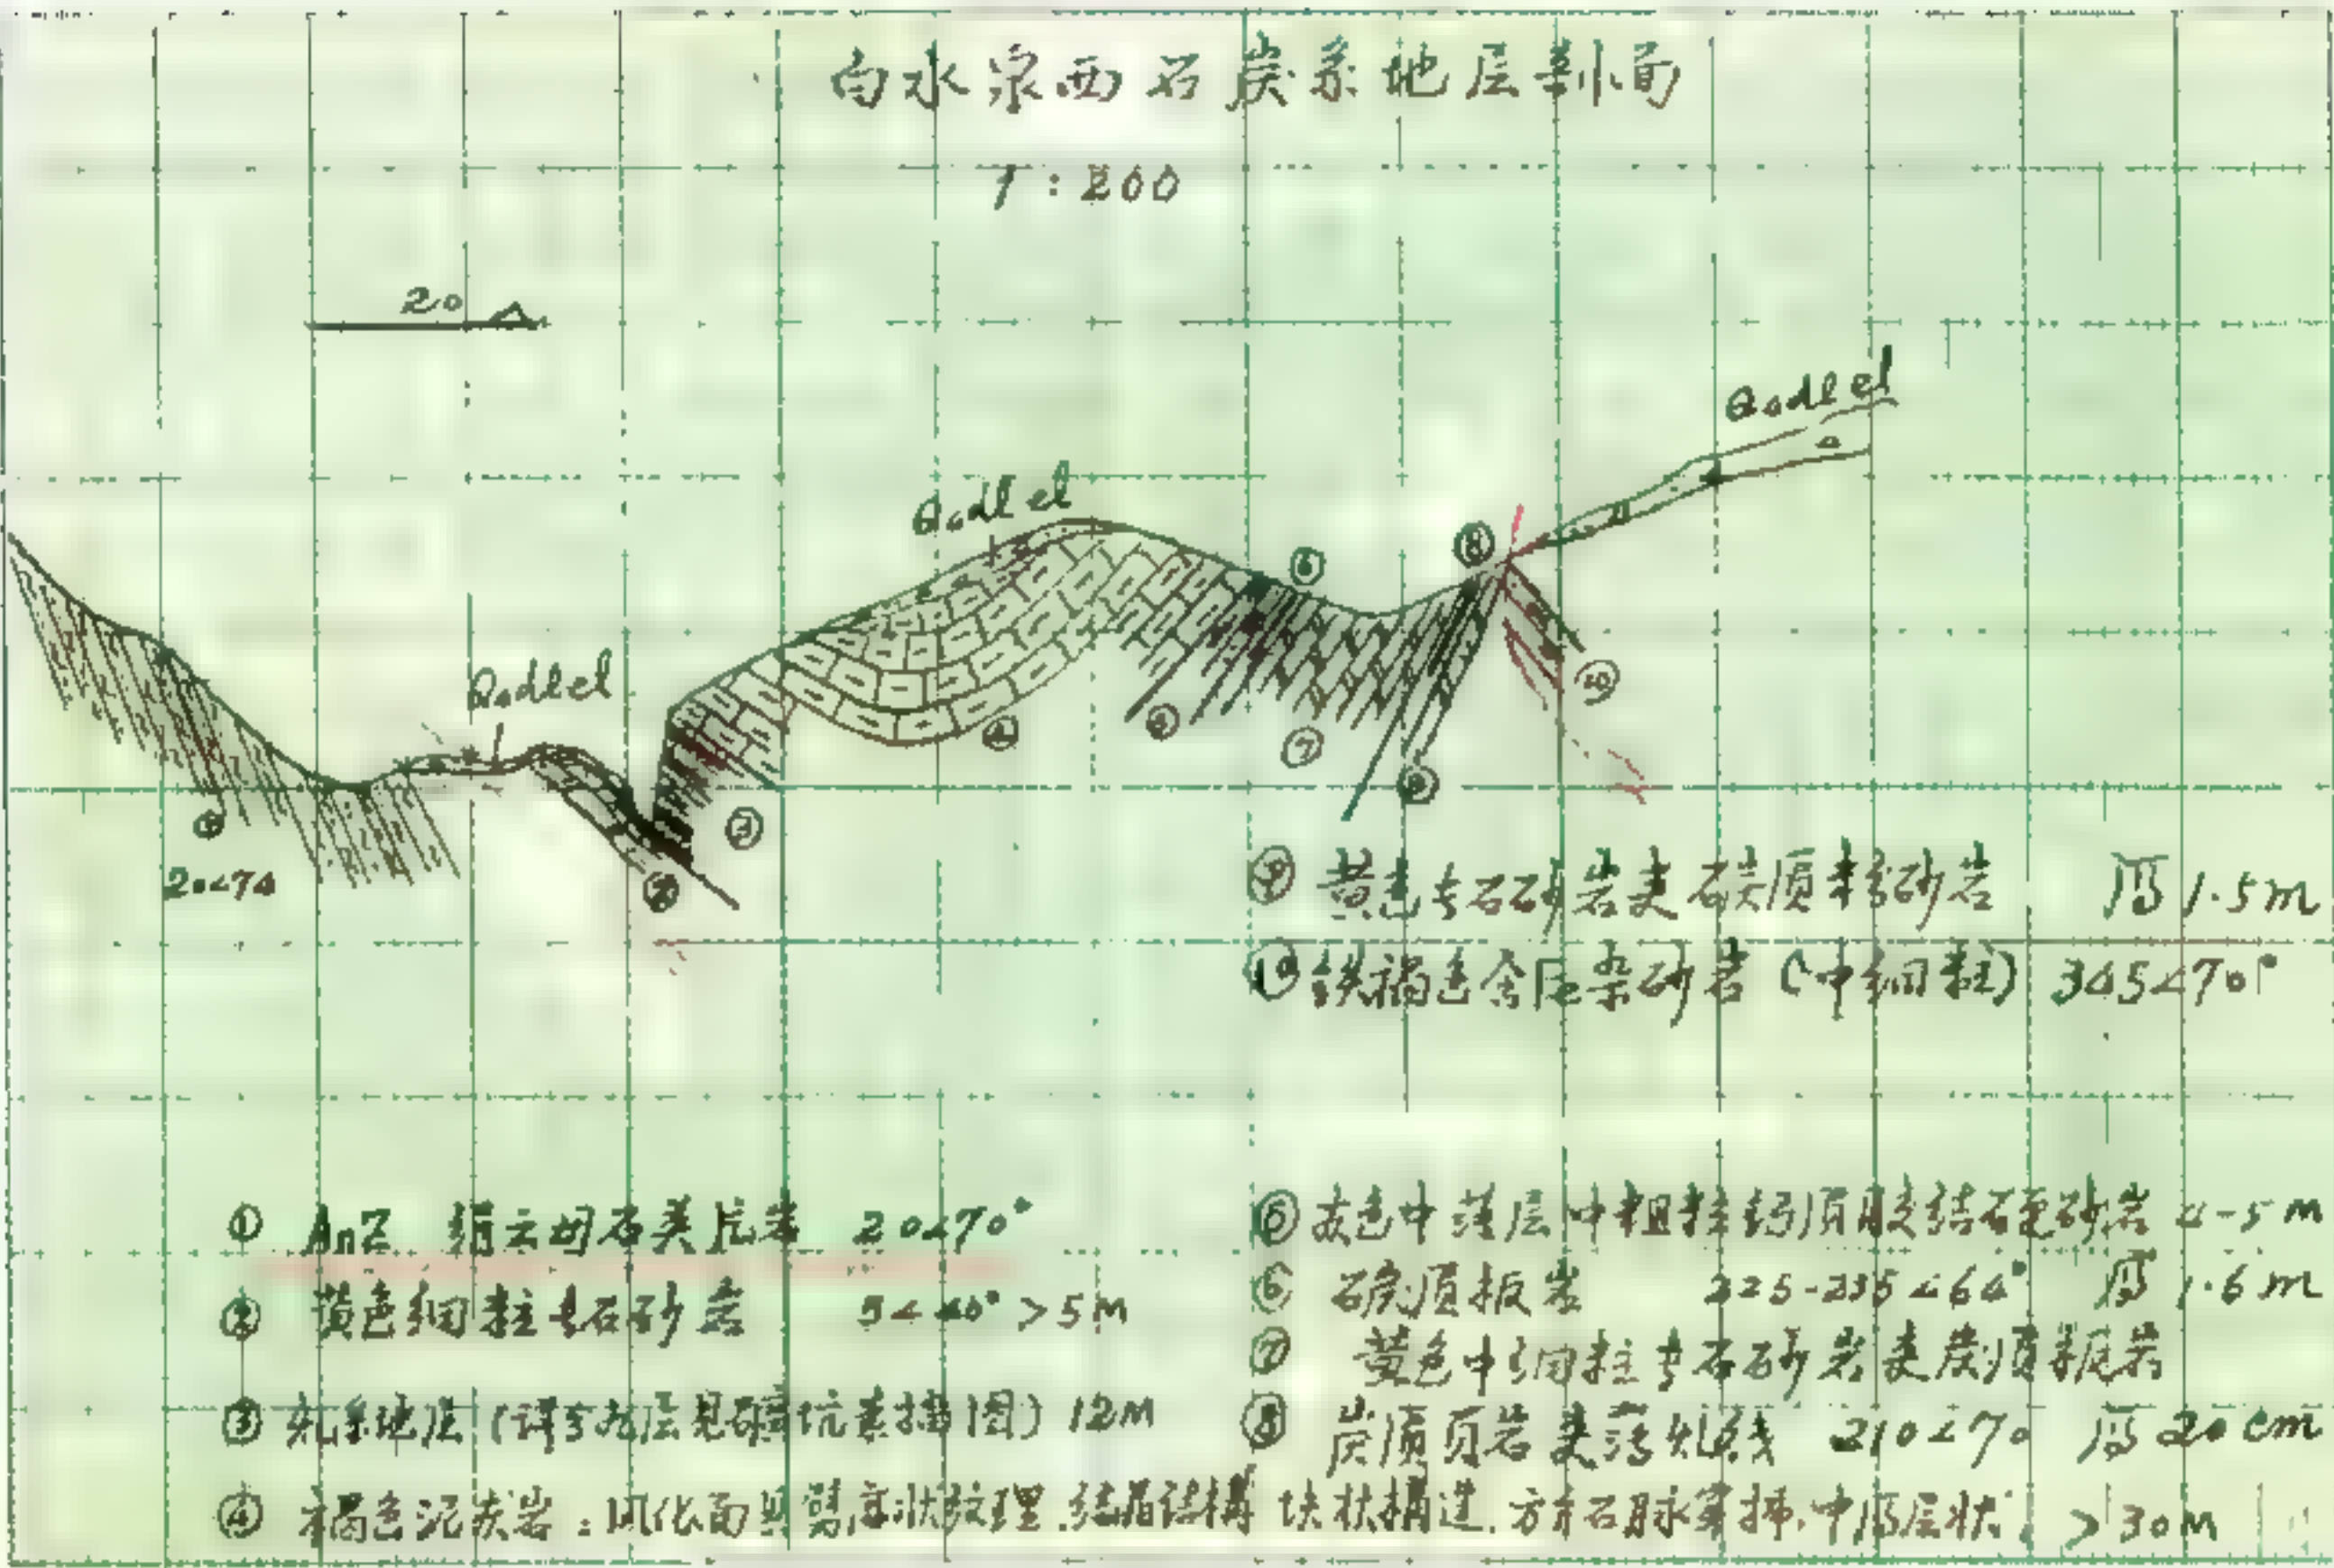 白水泉西石炭系地层剖面
1:200
20
Q₄dlel
Q₄dlel
Q₄dlel
⑥ ⑧
④ ⑦ ⑩
① ② ③ ⑨
20<70
⑨ 黄色长石砂岩夹碳质粉砂岩 厚1.5m
⑩ 铁褐色含尾杂砂岩(中细粒) 345<70°
① AnZ 绢云母石英片岩 20<70°
② 黄色细粒长石砂岩 5<40° >5m
③ 地层(详 层见 坑素描图) 12M
④ 褐色泥灰岩:风化面 状纹理.结晶结構 块状構造.方解石脉穿插.中厚层状. >30M
⑤ 灰色中薄层中粗粒钙质胶结石英砂岩 4-5m
⑥ 碳质板岩 225-235<64° 厚1.6m
⑦ 黄色中细粒长石砂岩夹炭质板岩
⑧ 炭质页岩夹薄煤线 210<70 厚20cm